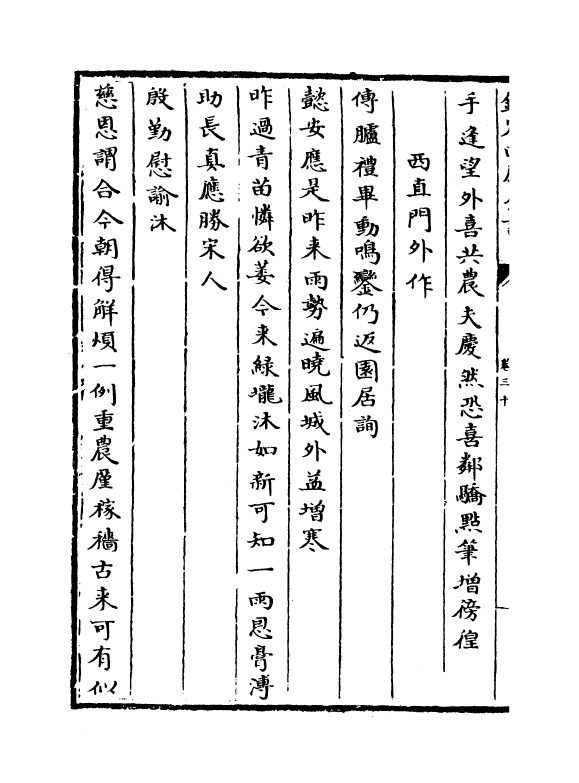 卷三十
手逢望外喜共農夫慶然恐喜鄰驕點筆增徬徨
西直門外作
傳臚禮畢動鳴鑾仍返園居詢
懿安應是昨来雨勢遍曉風城外益增寒
昨過青苗憐欲萎今来緑壠沐如新可知一雨恩膏溥
助長真應勝宋人
殷勤慰諭沐
慈恩謂合今朝得解煩一例重農廑稼穡古来可有似